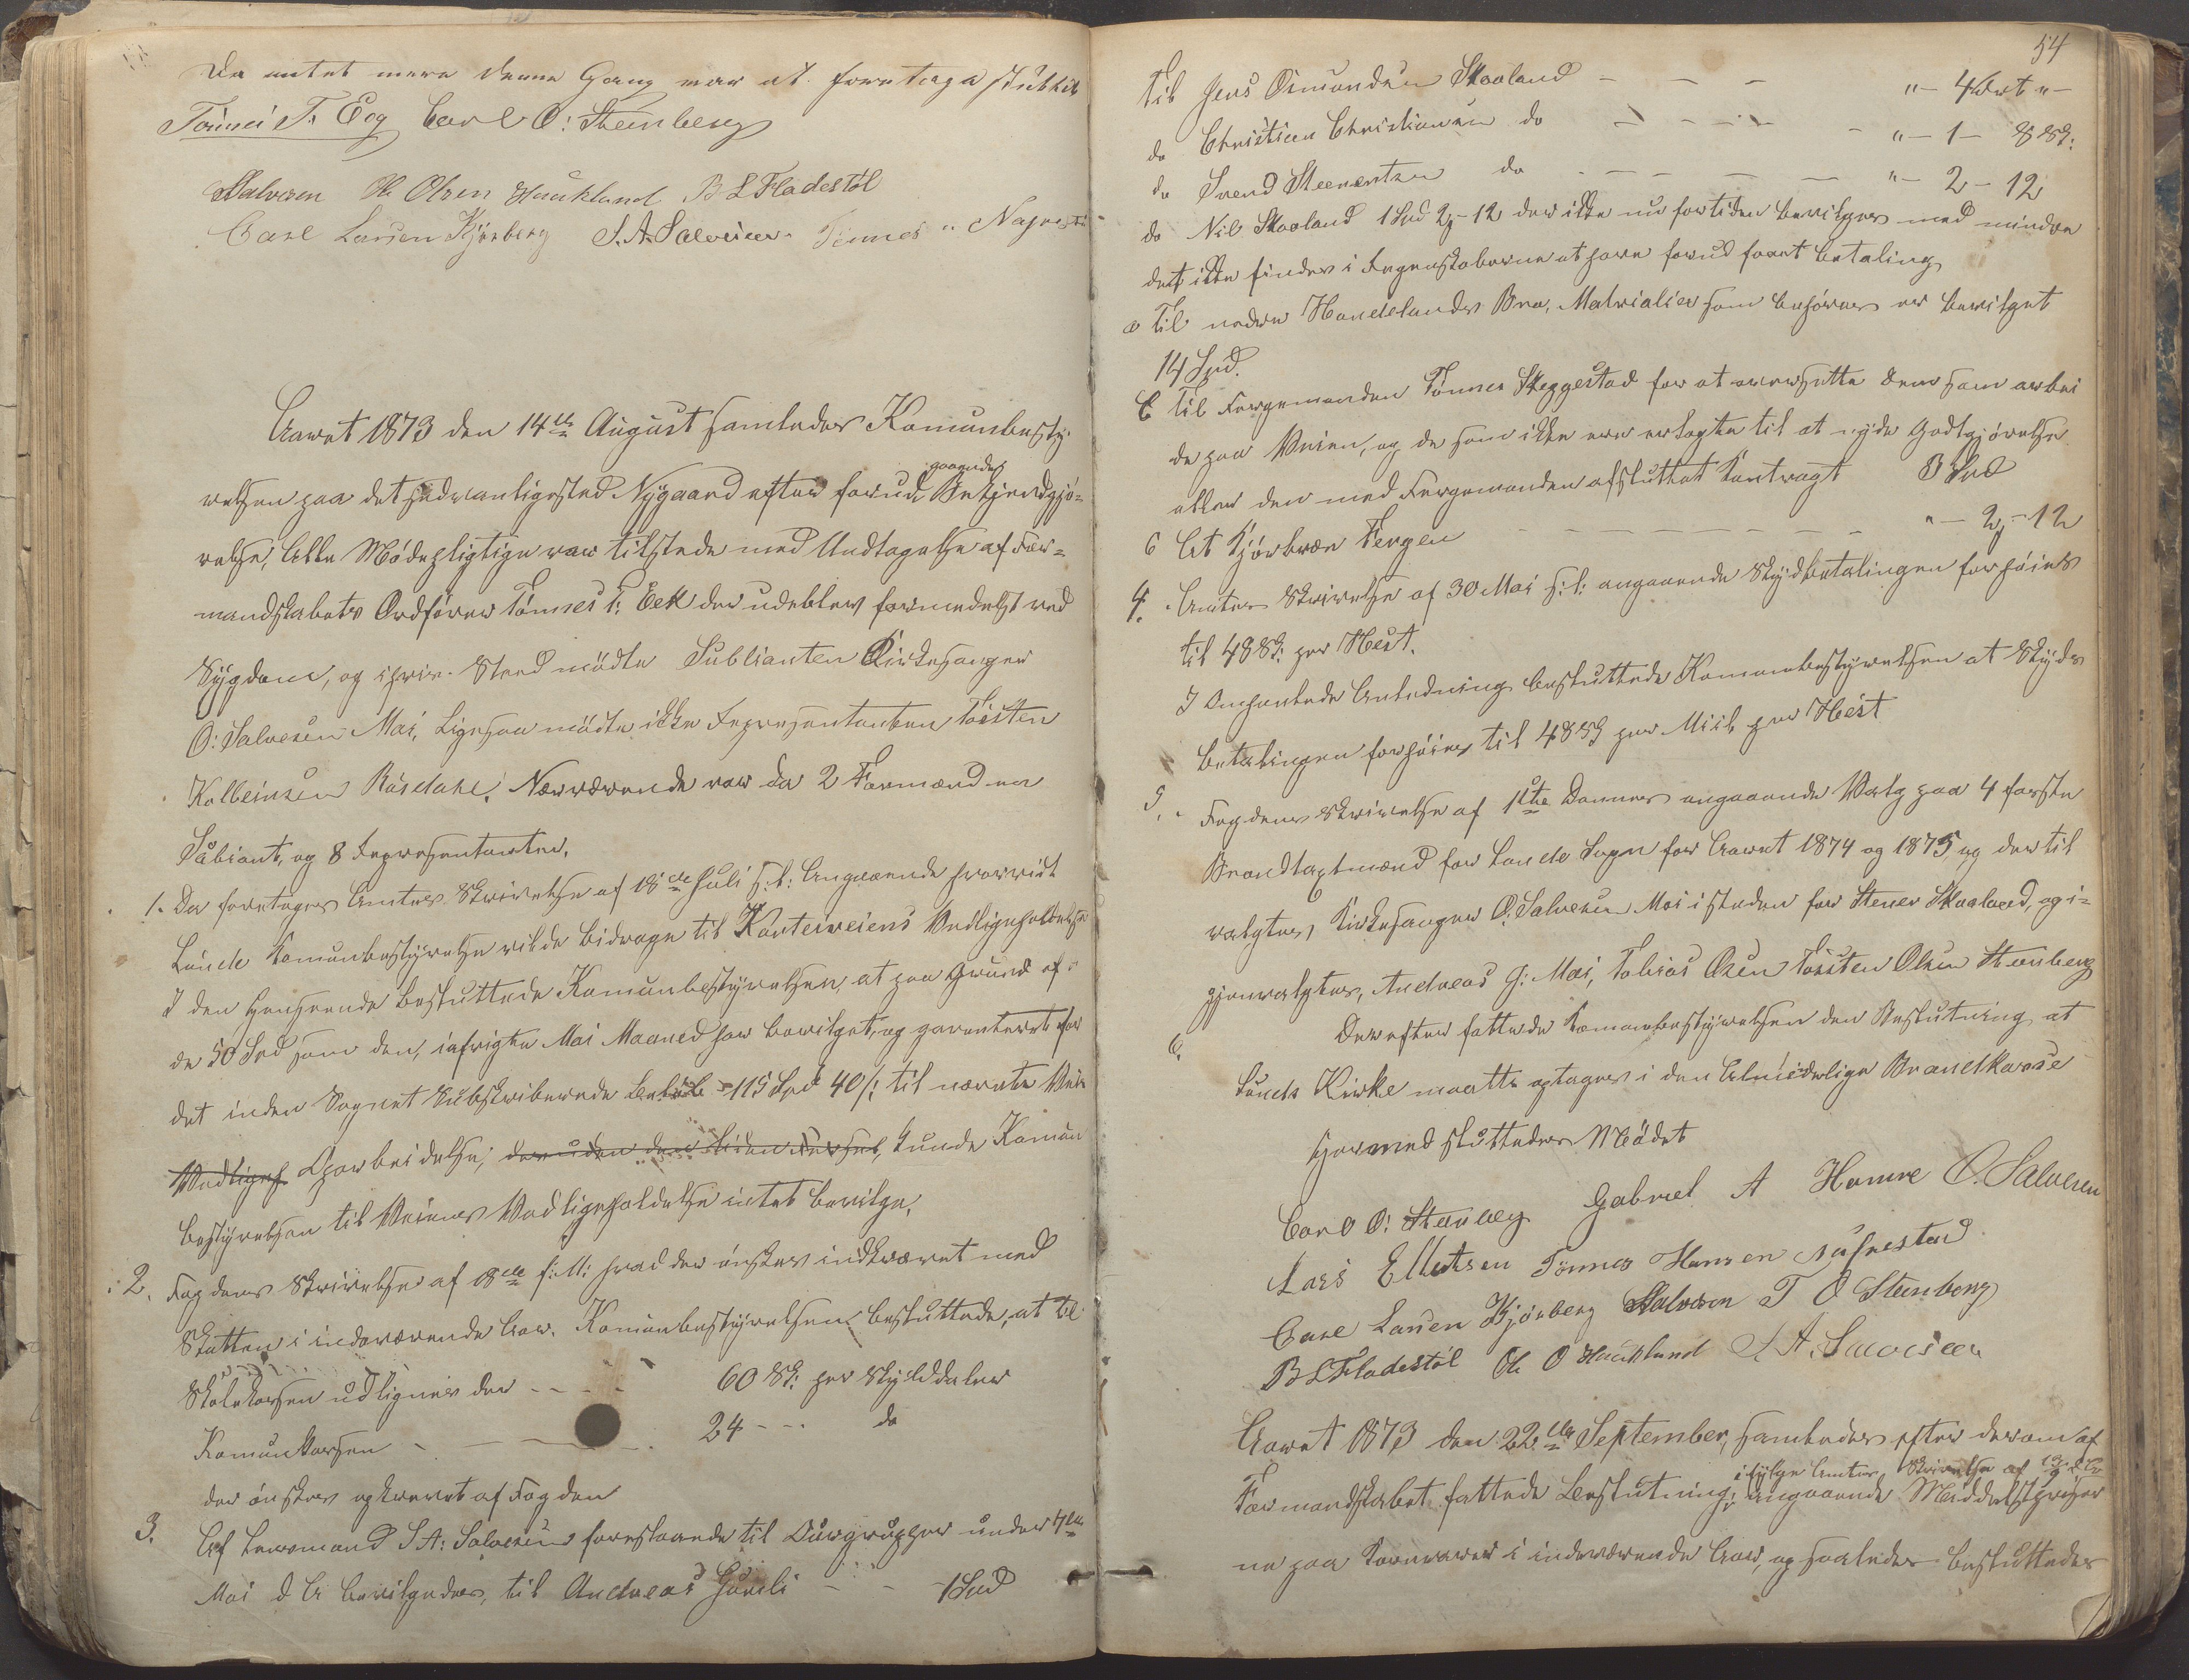 Da intet mere denne Gang var at foretage sluttet
Tønnes T. Eeg Carl O: Steinberg
Salvesen Ole Olsen Haukland B L Fladestöl
Carl Larsen Kjørberg S. A. Salvesen Tönnes
Aaret 1873 den 14de August samledes Komunbesty-
relsen paa det sædvanligested Nygaard efter forud gaaende Bekjendtgjø-
relse, Alle Mødepligtige var tilstede med Undtagelse af For-
mandskabets Ordfører Tønnes T: Eek der udeblev formedelst ved
Sygdom, og i hvis Sted mødte Sublianten Kirkesanger
O: Salvesen Moi, Ligesaa mødte ikke Representanten Tosten
Kolbeinsen Rosdahl, Nærværende var da 2 Formænd en
Subliant, og 8 Representanter.
1. Da foretages Amtets Skrivelse af 18de Juli h: t: Angaaende hvorvidt
Lunde Komunbestyrelse vilde bidrage til Vedligeholdelse
I den Henseende besluttede Komunbestyrelsen, at paa Grund af
de 50 Spd som den, i afvigte Mai Maaned har bevilget, og garanteret for
det inden Sognet Subskriberede Beløb 115 Spd 40 s: til nævnte Veis
Vedligeh Oparbeidelse, kunde Komun
bestyrelsen til Veiens Vedligeholdelse intet bevilge,
2. Fogdens Skrivelse af 18de f: M: hvad der ønskes indkrævet med
Skatten i indeværende Aar. Komunbestyrelsen besluttede, at til
Skolekassen udlignes der - - - 60 Sk: per Skylddaler
Komunkassen - - - 24 - - do
der ønskes opkrævet af Fogden
3. Af Lensmand S A: Salvesens forestaaende til under 7de
Mai d A bevilgedes, til Andreas Gursli - - 1 Spd
54
til Jens Osmundsen Skaaland - - - " - 4 Ort " -
do Christian Christiansen do - - - " - 1 - 8 Sk:
do Svend Steenersen do - - - " - 2 - 12
do Nils Skaaland 1 Spd 2 - 12 der ikke nu for tiden bevilges med mindre
det ikke findes i Regnskaberne at have forud faaet betaling
a til nedre Haandelands Bro, Matrialier som behøves er bevilget
14 Spd.
b til Færgemanden Tønnes Skeggestad for at oversette dem som arbei
de paa Veien, og de som ikke ere erlagte til at nyde Godtgjørelse
eller den med Færgemanden afsluttet Kontragt 3 Spd
c At Kjøbræe Fergen - - - " - 2 - 12
4. Amtets Skrivelse af 30 Mai h: t: angaaende Skydsbetalingen forhøies
til 48 Sk: per Hest.
I Omhandlede Anledning besluttede Komunbestyrelsen at Skyds
betalingen forhøies til 48 Sk per Miil per Hest
5. Fogdens Skrivelse af 1ste Dennes angaaende Valg paa 4 faste
Brandtaxtmænd for Lunde Sogn for Aaret 1874 og 1875, og dertil
valgtes, Kirkesanger O. Salvesen Moi i steden for Stener Skaaland, og i-
gjenvalgtes, Andreas G: Moi, Tobias Osen Tosten Olsen Steinberg
6. Derefter fattede Komunbestyrelsen den Beslutning at
Lunds Kirke maatte optages i den Almindelige Brandkasse
Hermed sluttedes Mødet
Carl O: Steinberg Gabriel A Hamre O. Salvesen
Lars Ellertsen Tönnes Hansen
Carl Larsen Kjørberg Salvesen T O Steinberg
B L Fladestöl Ole O Haukland S. A. Salvesen
Aaret 1873 den 22de September, samledes efter derom af
Formandskabet fattede Beslutning, ifølge Amtets Skrivelse af angaaende Middelspriser
ne paa Kornvarer i indeværende Aar, og saaledes besluttedes